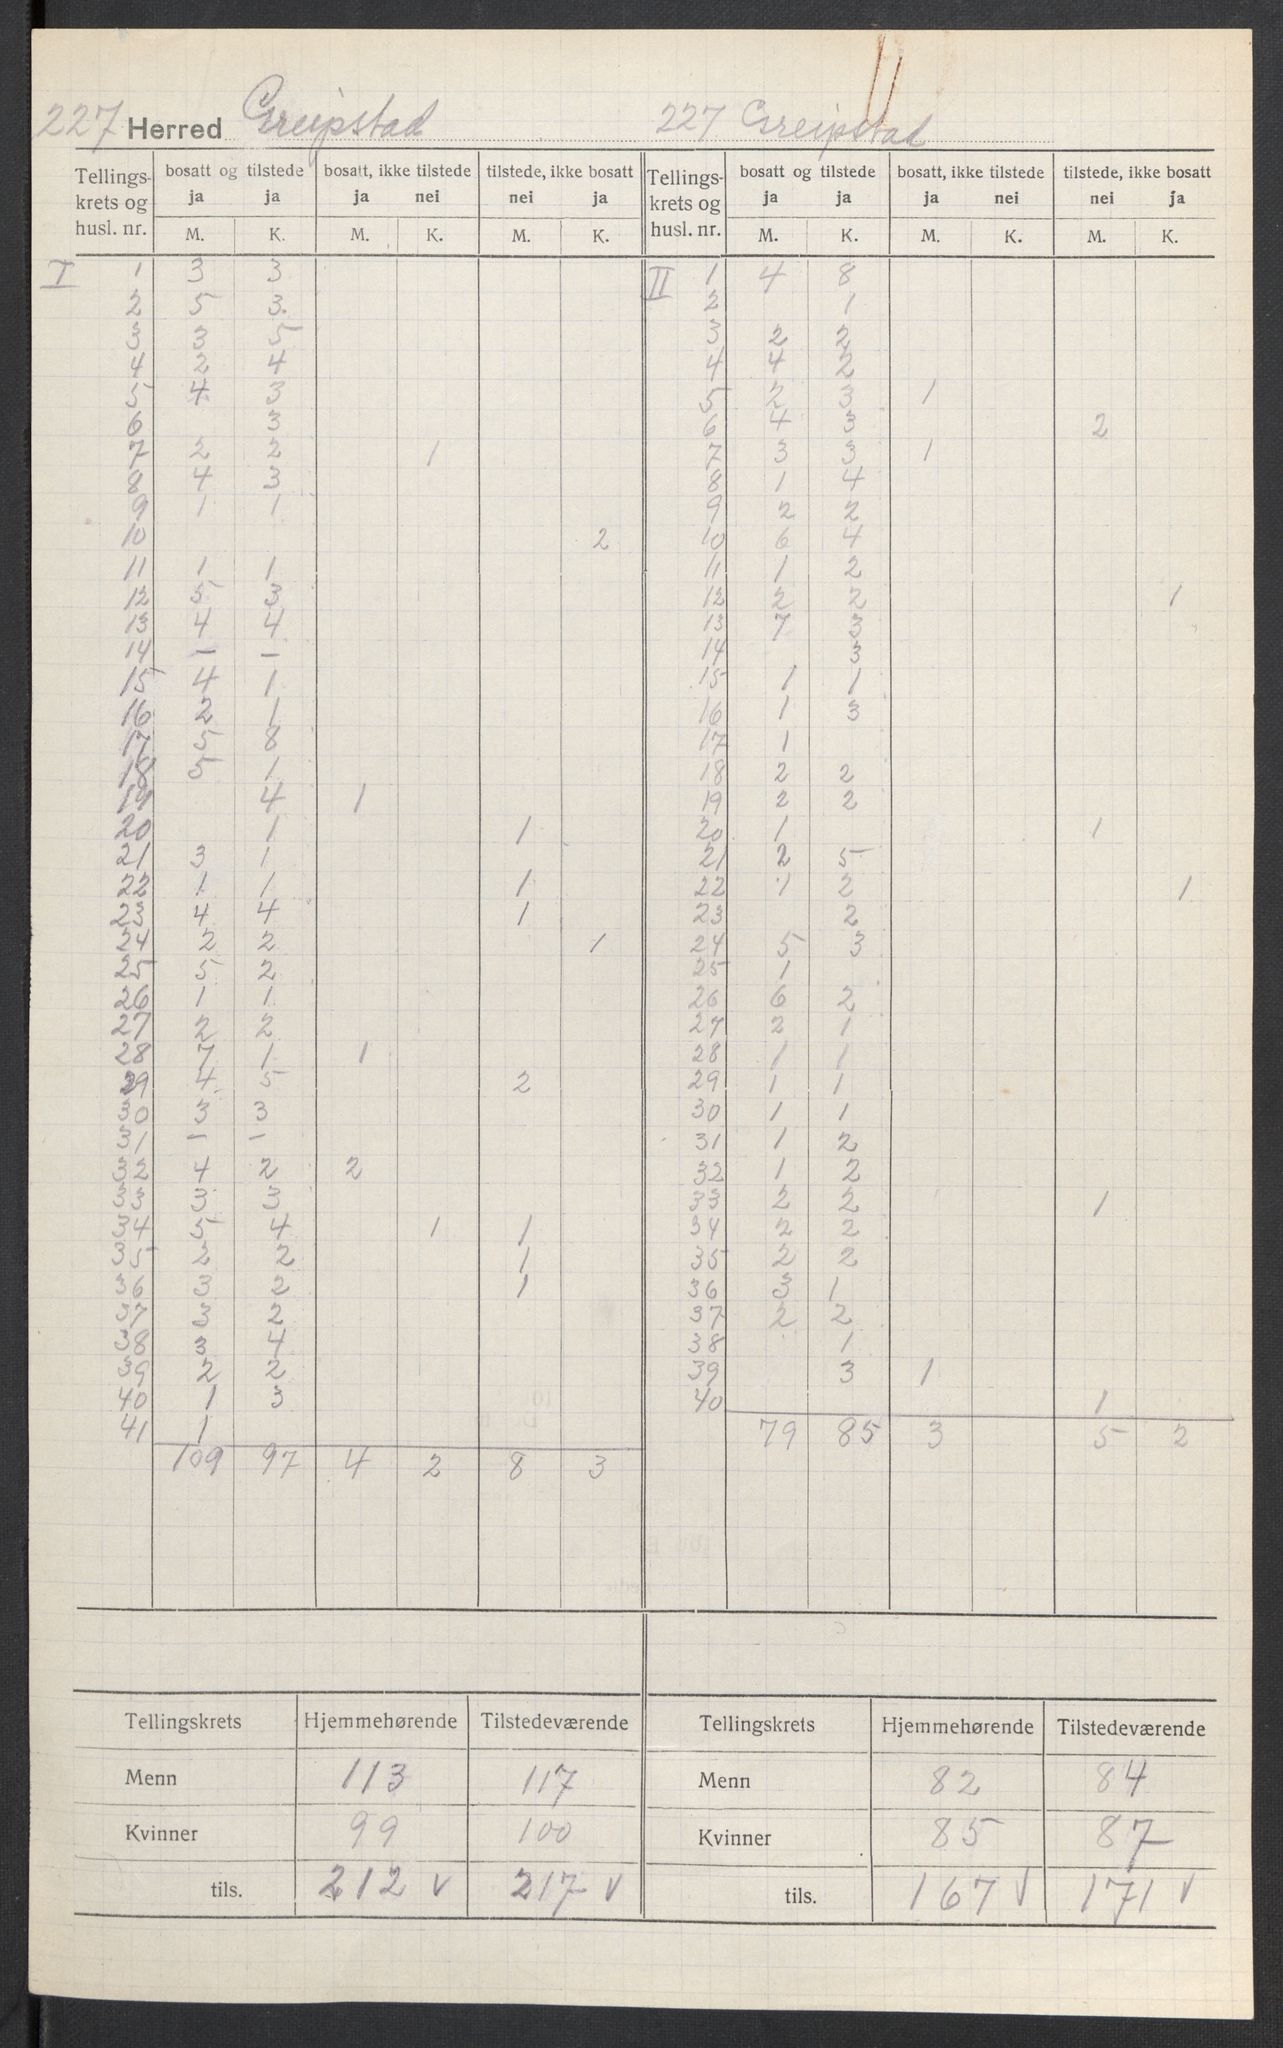 227 Herred Greipstad
Tellings- krets og husl. nr. | bosatt og tilstede ja ja | bosatt, ikke tilstede ja nei | tilstede, ikke bosatt nei ja
M. K. M. K. M. K.
I 1 3 3
2 5 3
3 3 5
4 2 4
5 4 3
6 3
7 2 2 1
8 4 3
9 1 1
10 2
11 1 1
12 5 3
13 4 4
14 – –
15 4 1
16 2 1
17 5 8
18 5 1
19 4 1
20 1 1
21 3 1
22 1 1 1
23 4 4 1
24 2 2 1
25 5 2
26 1 1
27 2 2
28 7 1 1
29 4 5 2
30 3 3
31 – –
32 4 2 2
33 3 3
34 5 4 1 1
35 2 2 1
36 3 2 1
37 3 2
38 3 4
39 2 2
40 1 3
41 1
109 97 4 2 8 3
Tellingskrets Hjemmehørende Tilstedeværende
Menn 113 117
Kvinner 99 100
tils. 212 v 217 v
227 Greipstad
Tellings- krets og husl. nr. | bosatt og tilstede ja ja | bosatt, ikke tilstede ja nei | tilstede, ikke bosatt nei ja
M. K. M. K. M. K.
II 1 4 8
2 1
3 2 2
4 4 2
5 2 3 1
6 4 3 2
7 3 3 1
8 1 4
9 2 2
10 6 4
11 1 2
12 2 2 1
13 7 3
14 3
15 1 1
16 1 3
17 1
18 2 2
19 2 2
20 1 1
21 2 5
22 1 2 1
23 2
24 5 3
25 1
26 6 2
27 2 1
28 1 1
29 1 1
30 1 1
31 1 2
32 1 2
33 2 2 1
34 2 2
35 2 2
36 3 1
37 2 2
38 1
39 3 1
40 1
79 85 3 5 2
Tellingskrets Hjemmehørende Tilstedeværende
Menn 82 84
Kvinner 85 87
tils. 167 v 171 v